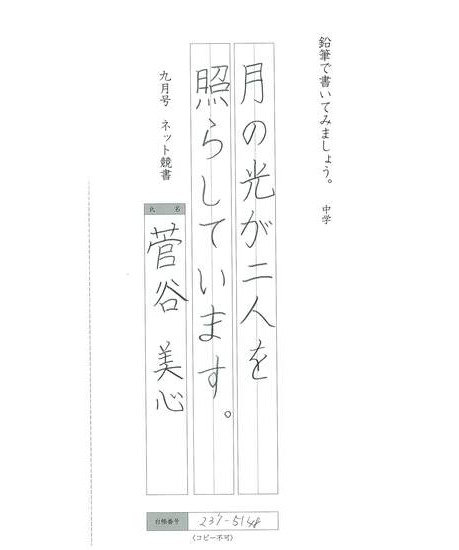 鉛筆で書いてみましょう。 中学
月の光が二人を
照らしています。
九月号 ネット競書
氏 名
菅谷 美心
台帳番号 237-5148
(コピー不可)